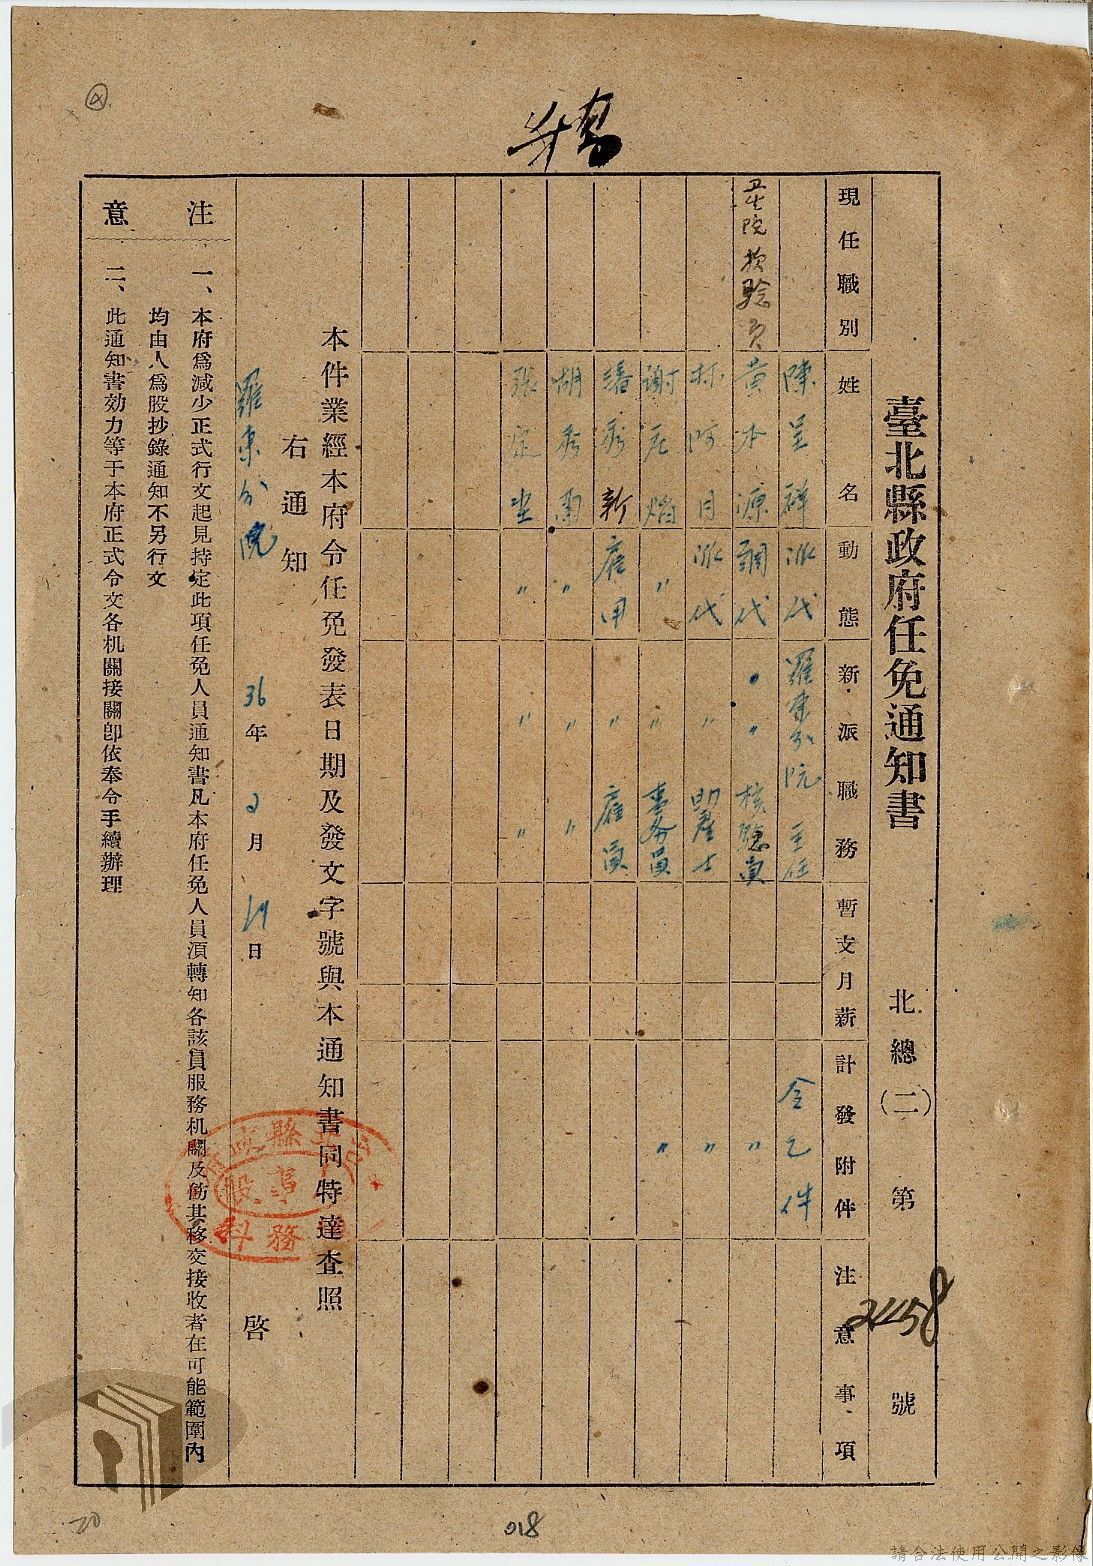 臺北縣政府任免通知書 北總(二)第2458號
現任職別 姓名 動態 新派職務 暫支月薪 計發附件 注意事項
陳呈祥 派代 羅東分院主任 令乙件
黃水源 調代 〃 〃 檢驗員 〃
林 月 派代 〃 助產士 〃
謝 焰 〃 〃 事務員 〃
潘秀新 雇用 〃 雇員
胡秀蘭 〃 〃 〃
張定 〃 〃 〃
本件業經本府令任免發表日期及發文字號與本通知書同特達查照
右通知
羅東分院 36年2月 日 啓
注意
一、本府爲減少正式行文起見持定此項任免人員通知書凡本府任免人員湏轉知各該員服務机關及飭其移交接收者在可能範圍內
均由人爲股抄錄通知不另行文
二、此通知書効力等于本府正式令文各机關接關卽依奉令手續辦理
018
20
請合法使用公開之影像